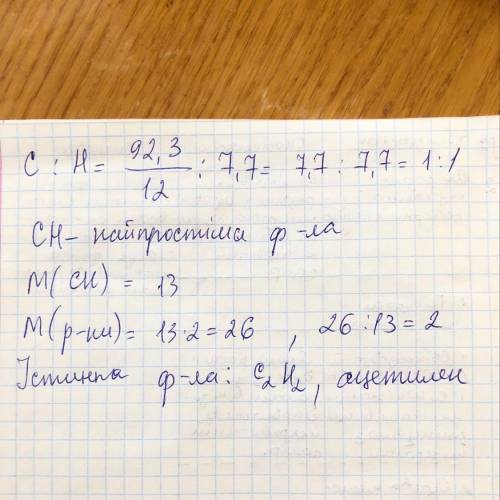 C : H = 92,3/12 : 7,7 = 7,7 : 7,7 = 1:1
CH - найпростіма ф-ла
M(CH) = 13
M(р-ни) = 13·2 = 26 , 26 : 13 = 2
Істинна ф-ла: C₂H₂, ацетилен